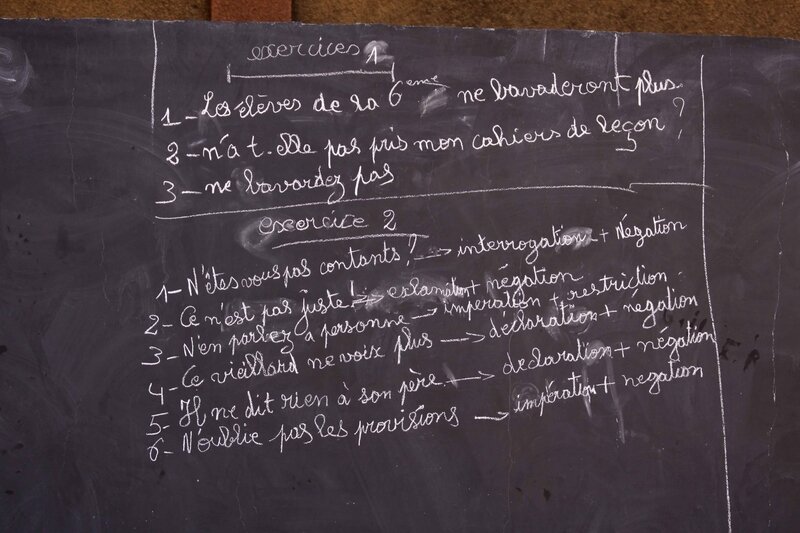 exercices 1
1- Les élèves de la 6eme ne bavaderont plus.
2- n'a t.elle pas pris mon cahiers de leçon ?
3- ne bavardez pas
exercice 2
1- N'êtes vous pas contants? → interrogation + Négation
2- Ce n'est pas juste! → exlamation + négation
3- N'en parlez à personne → impération + restriction
4- Ce vieillard ne voix plus → déclaration + negation
5- Il ne dit rien à son père. → declaration + négation
6- N'oublie pas les provisions → impération + negation